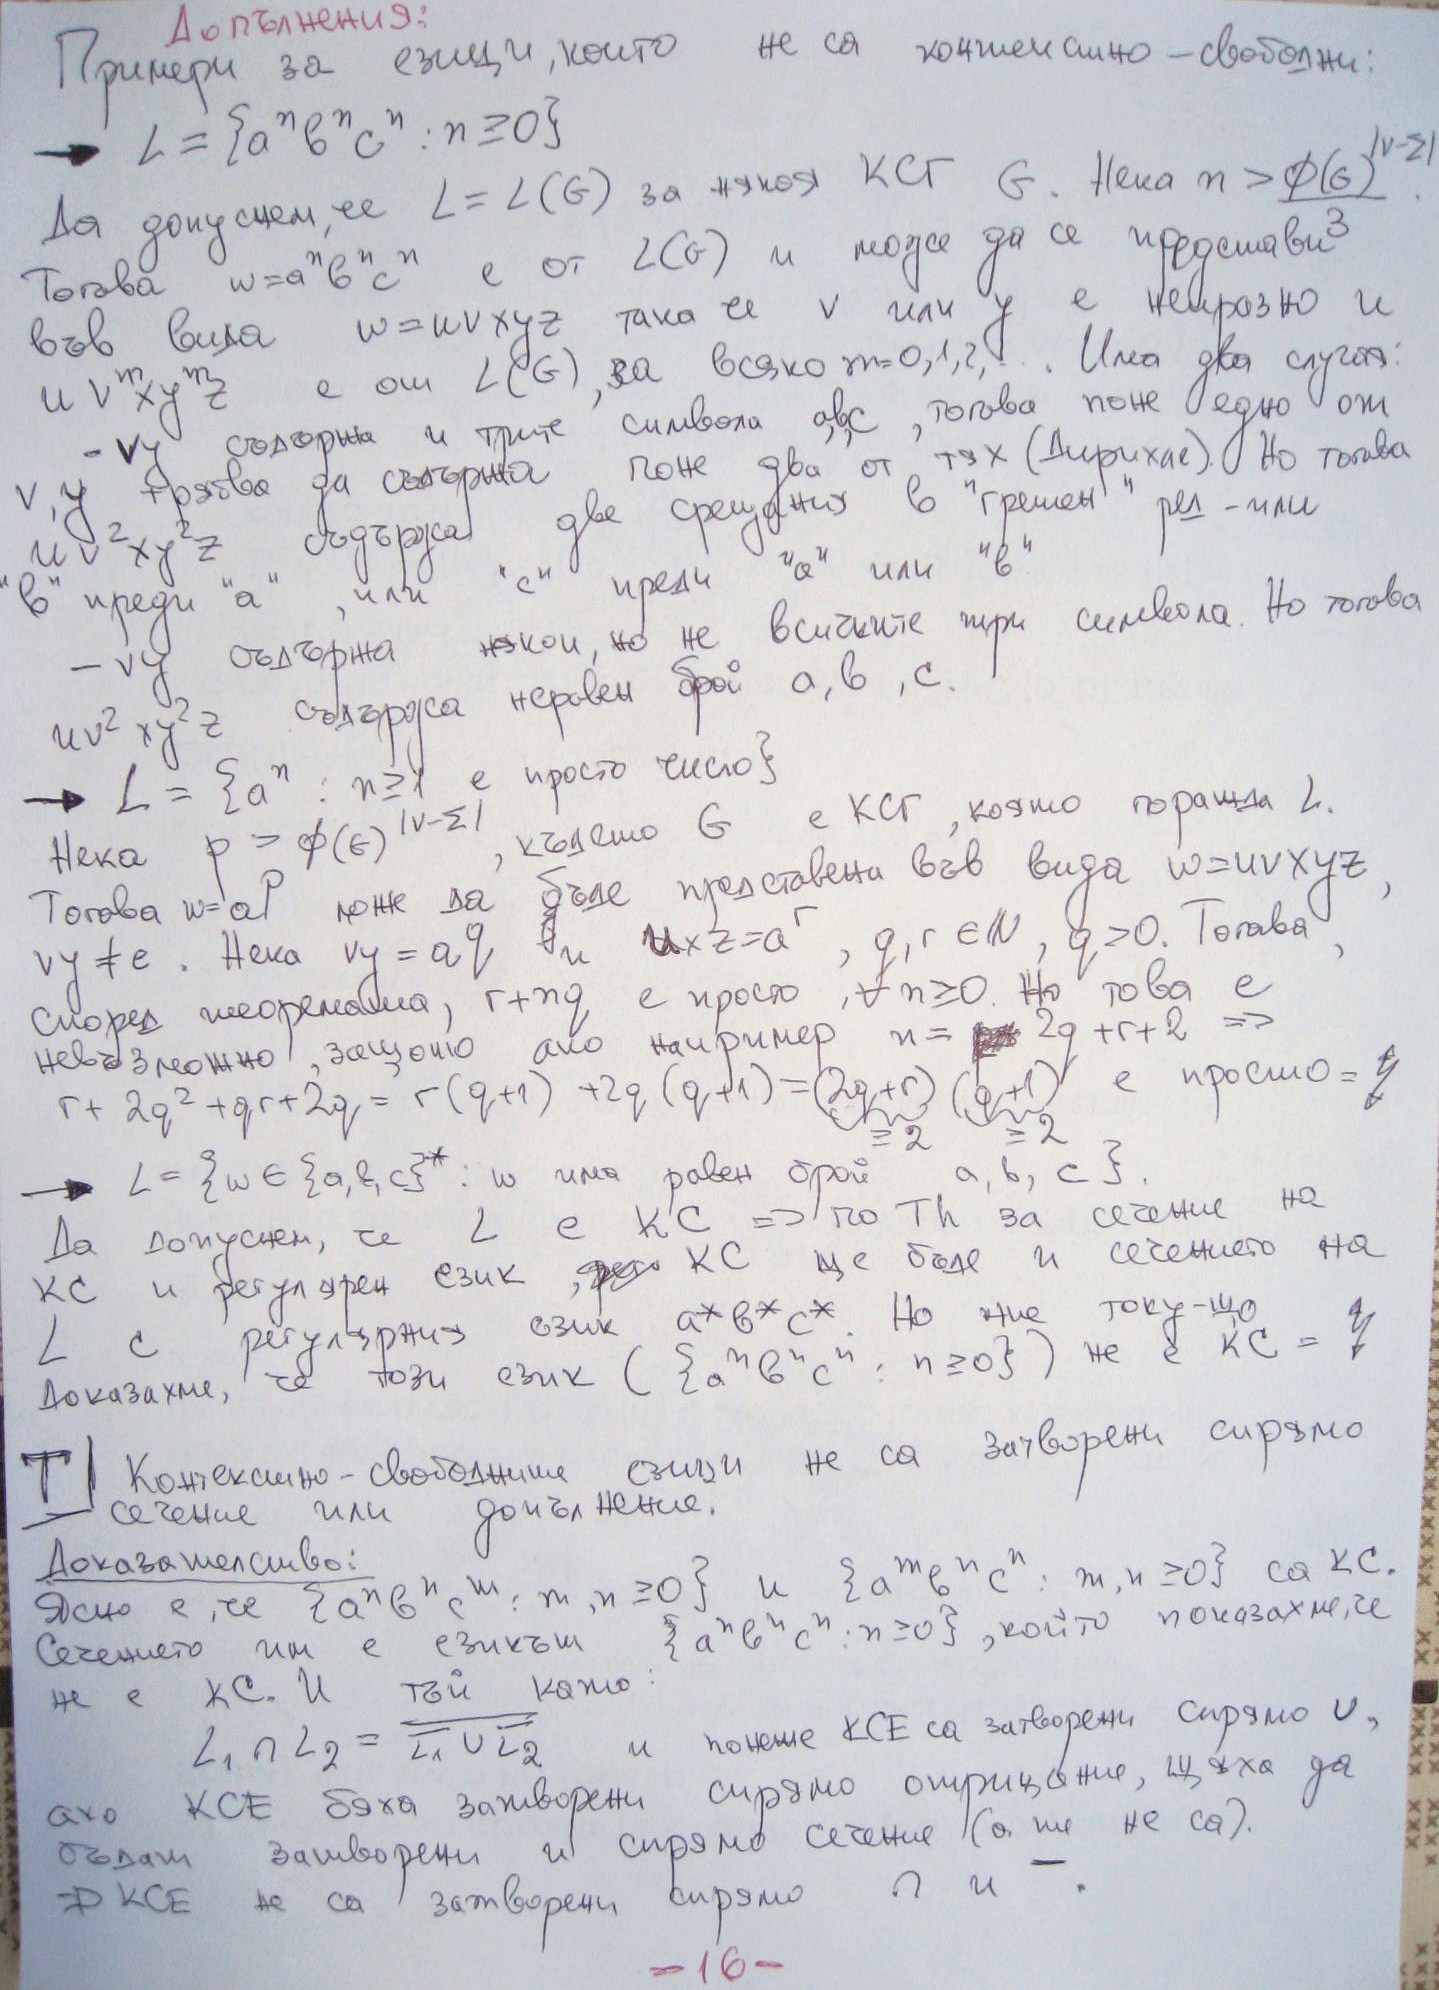 Допълнения:
Примери за езици, които не са контекстно-свободни:
→ L = {aⁿbⁿcⁿ : n ≥ 0}
Да допуснем, че L = L(G) за някоя КСГ G. Нека n > φ(G)^|V-Σ| / 3.
Тогава w = aⁿbⁿcⁿ е от L(G) и може да се представи
във вида w = uvxyz така че v или y е непразно и
uvᵐxyᵐz е от L(G), за всяко m=0,1,2,... Има два случая:
- vy съдържа и трите символа a,b,c, тогава поне едно от
v,y трябва да съдържа поне два от тях (Дирихле). Но тогава
uv²xy²z съдържа две срещания в "грешен" ред - или
"b" преди "a", или "c" преди "a" или "b"
- vy съдържа някои, но не всичките три символа. Но тогава
uv²xy²z съдържа неравен брой a, b, c.
→ L = {aⁿ : n ≥ 1 е просто число}
Нека p > φ(G)^|V-Σ|, където G е КСГ, която поражда L.
Тогава w = aᵖ може да бъде представена във вида w = uvxyz,
vy ≠ e. Нека vy = a^q и uxz = a^r, q,r ∈ N, q > 0. Тогава,
според теоремата, r+nq е просто, ∀ n ≥ 0. Но това е
невъзможно, защото ако например n = 2q+r+2 =>
r+2q²+qr+2q = r(q+1)+2q(q+1) = (2q+r)(q+1) е просто = ↯
≥2 ≥2
→ L = {w ∈ {a,b,c}* : w има равен брой a, b, c}.
Да допуснем, че L е КС => по Th за сечение на
КС и регулярен език, КС ще бъде и сечението на
L с регулярния език a*b*c*. Но ние току-що
доказахме, че този език ({aⁿbⁿcⁿ : n ≥ 0}) не е КС = ↯
T| Контекстно-свободните езици не са затворени спрямо
сечение или допълнение.
Доказателство:
Ясно е, че {aⁿbⁿcᵐ : m,n ≥ 0} и {aᵐbⁿcⁿ : m,n ≥ 0} са КС.
Сечението им е езикът {aⁿbⁿcⁿ : n ≥ 0}, който показахме, че
не е КС. И тъй като:
L₁ ∩ L₂ = \overline{\overline{L₁} ∪ \overline{L₂}} и понеже КСЕ са затворени спрямо ∪,
ако КСЕ бяха затворени спрямо отрицание, щяха да
бъдат затворени и спрямо сечение (а те не са).
=> КСЕ не са затворени спрямо ∩ и ‾.
-16-